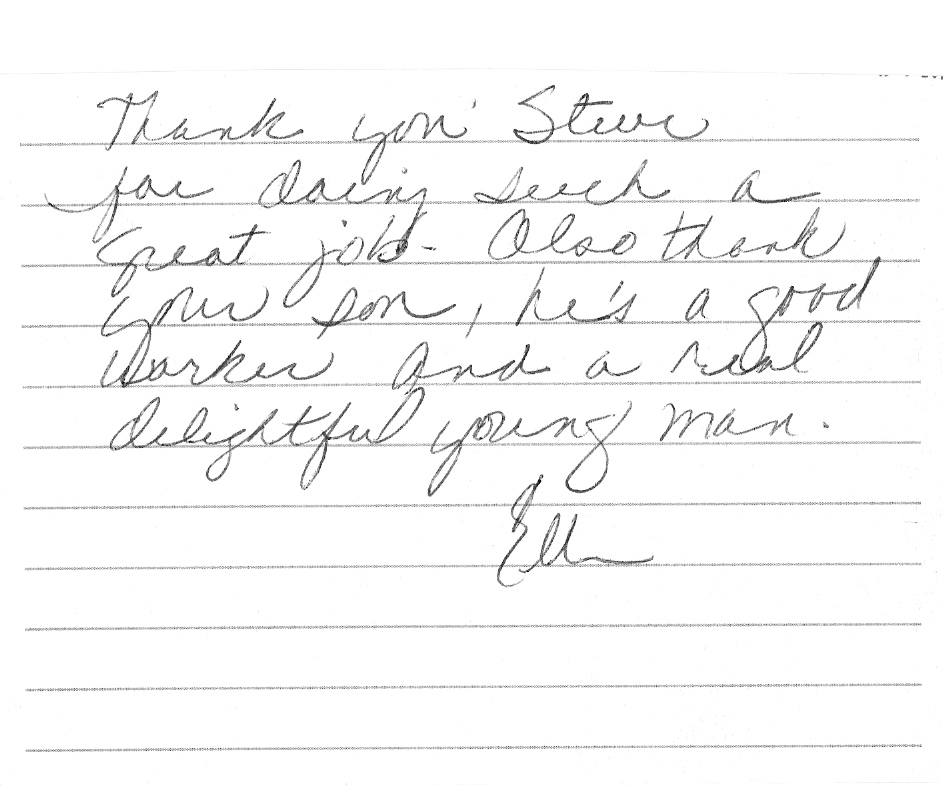 Thank you Steve
for doing such a
great job. Also thank
your son, he's a good
worker and a real
delightful young man.
Ellen